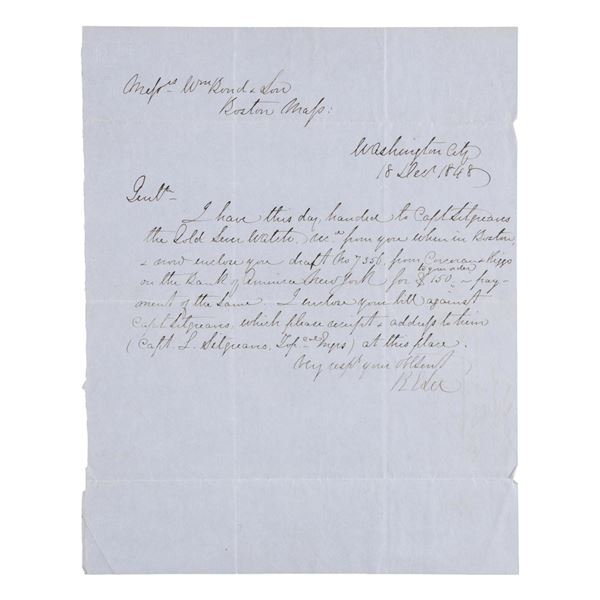 Messrs Wm Bond & Son
Boston Mass:
Washington City
18 Decr 1848
Gentn
I have this day, handed to Capt Sitgreaves
the Gold Lever Watch, recd from you when in Boston,
& now enclose you draft No 7356, from Corcoran & Riggs
to your order
on the Bank of America New York for $150. - pay-
ment of the same. I enclose your bill against
Capt Sitgreaves, which please receipt & address to him
(Capt L. Sitgreaves, Topcal Engrs) at this place.
Very respy your Obt Servt
R E Lee